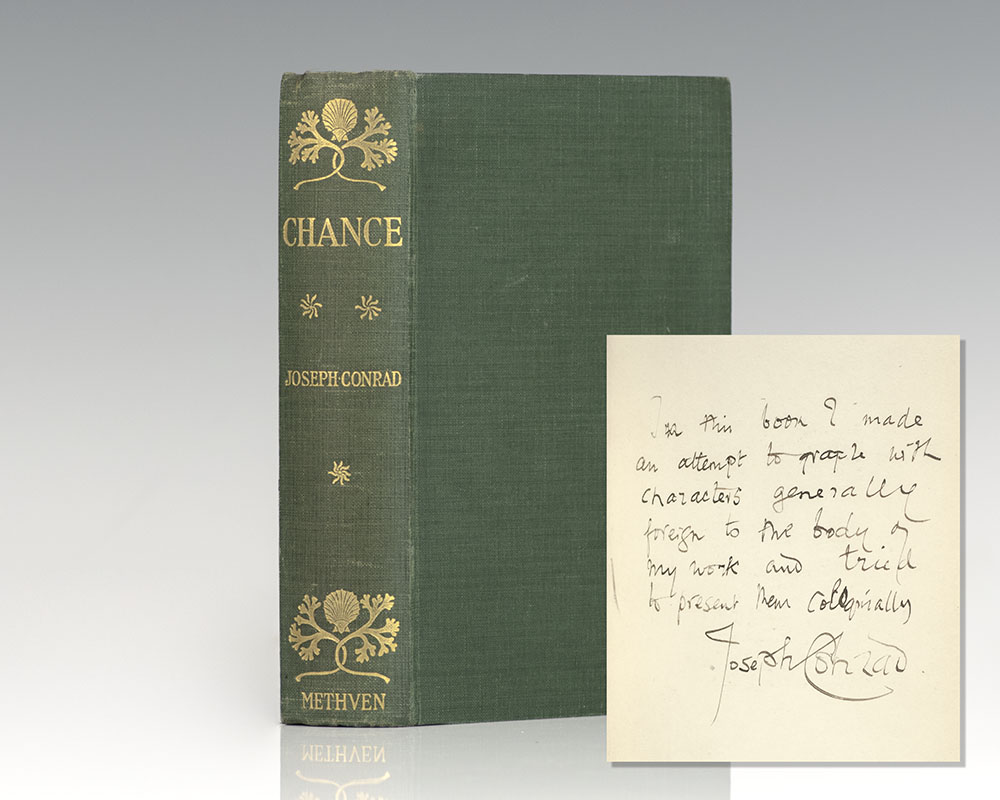 CHANCE
JOSEPH·CONRAD
METHVEN
In this book I made
an attempt to graple with
characters generally
foreign to the body of
my work and tried
to present them coloquially
Joseph Conrad.